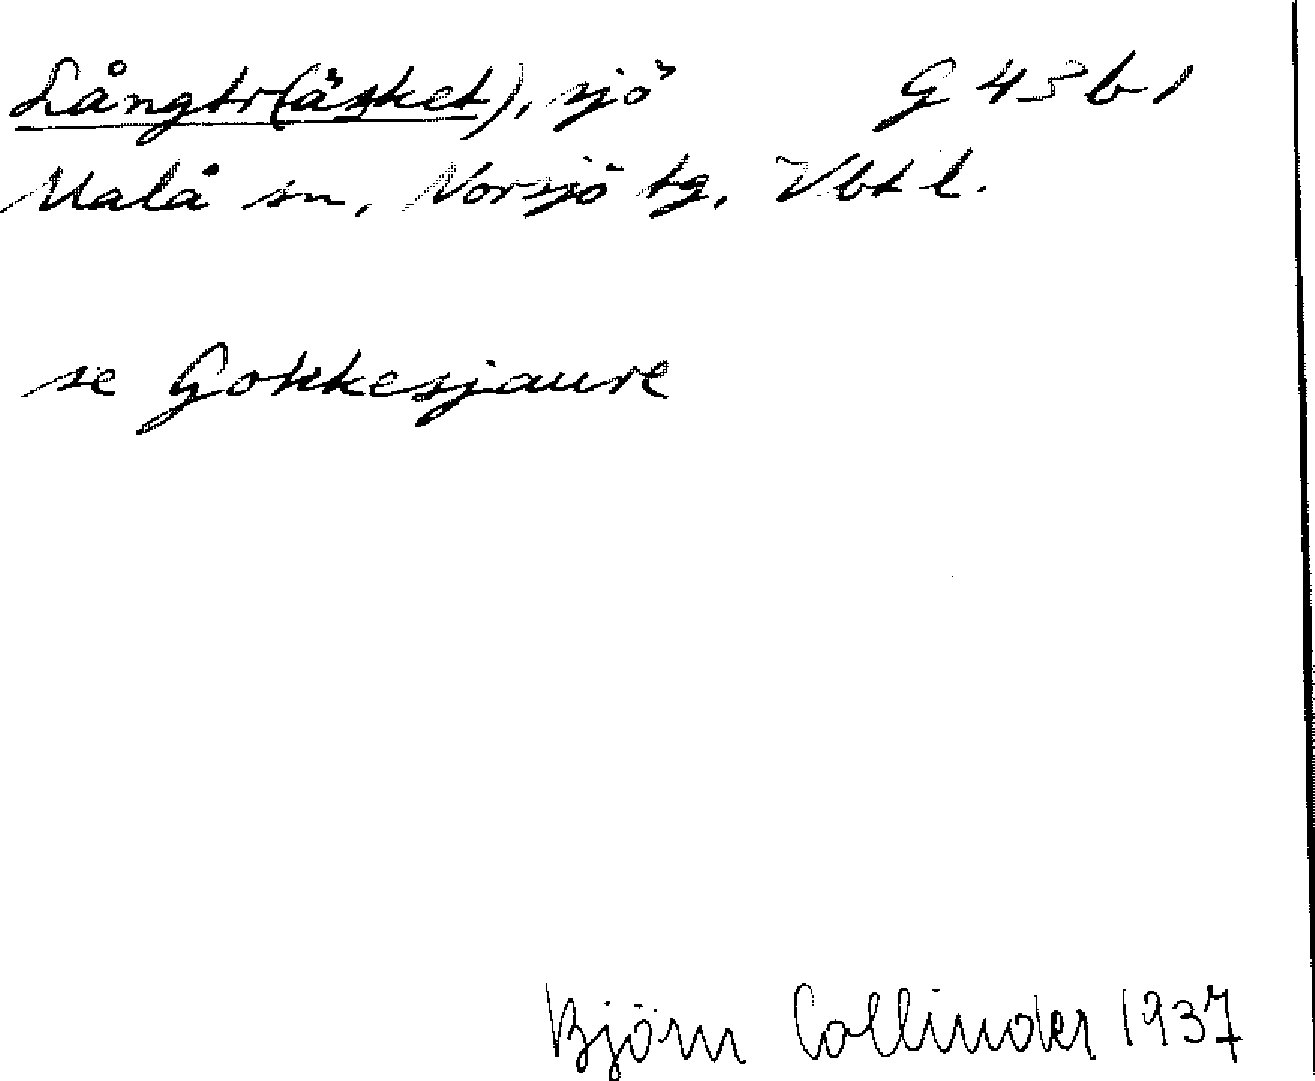 Långtr(äsket), sjö G 43 b 1
Malå sn, Norsjö tg, Vbtl.
se Gokkesjaure
Björn Collinder 1937